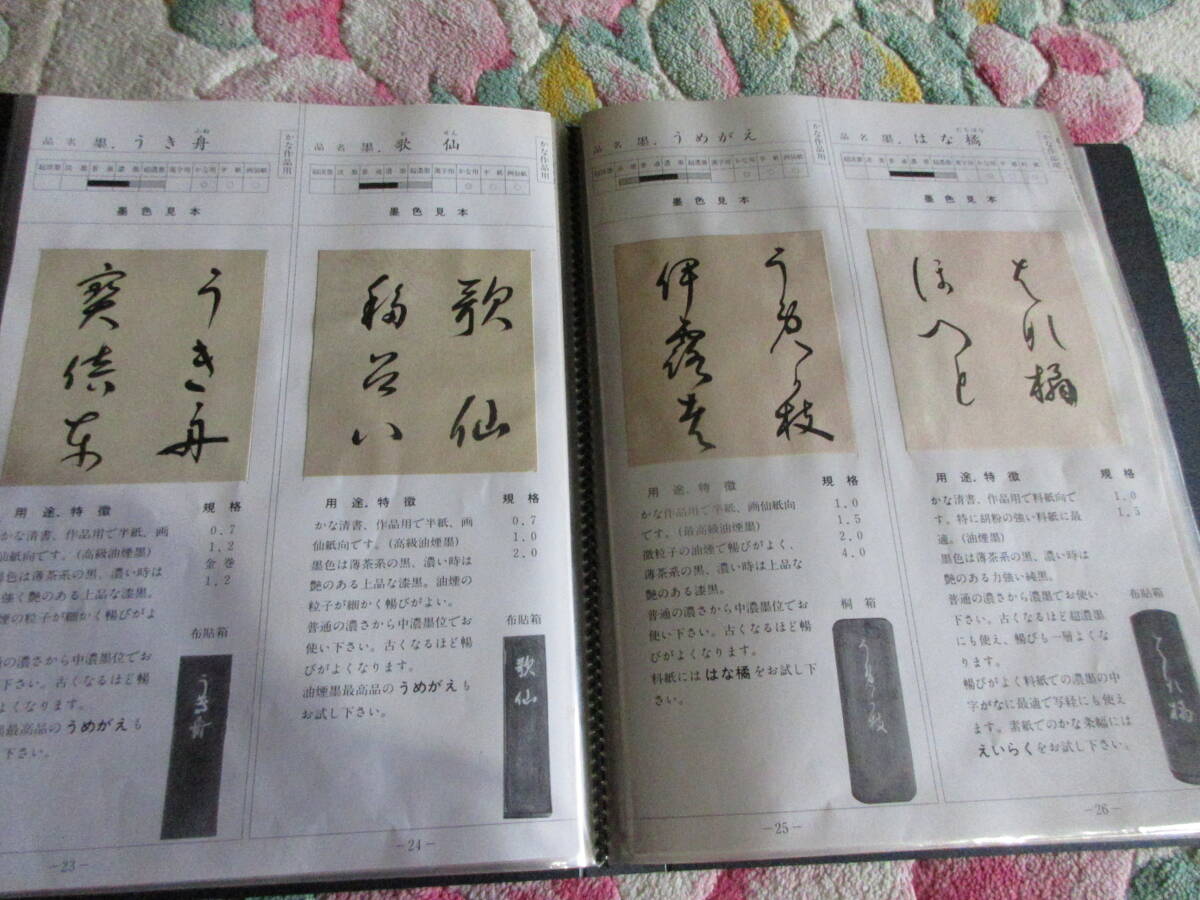 かな作品用
ふね
品名 墨. うき舟
超淡墨 淡墨 普通 濃墨 超濃墨 漢字用 かな用 半紙 画仙紙
墨色見本
うき舟
用途.特徴
規格
かな清書、作品用で半紙、画
仙紙向です。(高級油煙墨)
墨色は薄茶系の黒、濃い時は
強く艶のある上品な漆黒。
煙の粒子が細かく暢びがよ
の濃さから中濃墨位でお
下さい。古くなるほど暢
よくなります。
最高品のうめがえも
下さい。
0.7
1.2
金巻
1.2
布貼箱
うき舟
—23—
かな作品用
か せん
品名 墨. 歌仙
超淡墨 淡墨 普通 濃墨 超濃墨 漢字用 かな用 半紙 画仙紙
墨色見本
歌仙
用途.特徴
規格
かな清書、作品用で半紙、画
仙紙向です。(高級油煙墨)
墨色は薄茶系の黒、濃い時は
艶のある上品な漆黒。油煙の
粒子が細かく暢びがよい。
普通の濃さから中濃墨位でお
使い下さい。古くなるほど暢
びがよくなります。
油煙墨最高品のうめがえも
お試し下さい。
0.7
1.0
2.0
布貼箱
歌仙
—24—
かな作品用
品名 墨. うめがえ
超淡墨 淡墨 普通 濃墨 超濃墨 漢字用 かな用 半紙 画仙紙
墨色見本
用途.特徴
規格
かな清書、作品用で半紙、画仙紙向
です。(最高級油煙墨)
微粒子の油煙で暢びがよく、
薄茶系の黒、濃い時は上品な
艶のある漆黒。
普通の濃さから中濃墨位でお
使い下さい。古くなるほど暢
びがよくなります。
料紙にははな橘をお試し下
さい。
1.0
1.5
2.0
4.0
桐箱
—25—
かな作品用
たちばな
品名 墨. はな橘
超淡墨 淡墨 普通 濃墨 超濃墨 漢字用 かな用 半紙 画仙紙
墨色見本
はな橘
ほへと
用途.特徴
規格
かな清書、作品用で料紙向で
す。特に胡粉の強い料紙に最
適。(油煙墨)
墨色は薄茶系の黒、濃い時は
艶のある力強い純黒。
普通の濃さから濃墨でお使い
下さい。古くなるほど超濃墨
にも使え、暢びも一層よくな
ります。
暢びがよく料紙での濃墨の中
字がなに最適で写経にも使え
ます。素紙でのかな条幅には
えいらくをお試し下さい。
1.0
1.5
布貼箱
はな橘
—26—